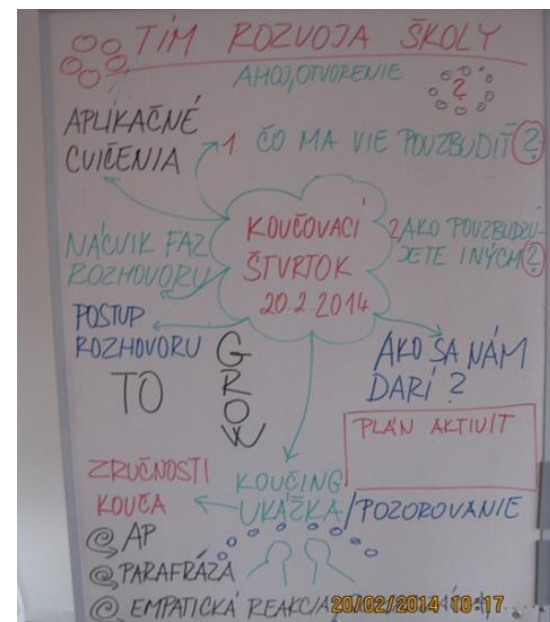 TÍM ROZVOJA ŠKOLY
AHOJ, OTVORENIE
?
APLIKAČNÉ
CVIČENIA
1. ČO MA VIE POVZBUDIŤ?
KOUČOVACÍ
ŠTVRTOK
20.2.2014
2 AKO POVZBUDZU-
JETE INÝCH?
NÁCVIK FÁZ
ROZHOVORU
POSTUP
ROZHOVORU
TO
GROW
AKO SA NÁM
DARÍ?
PLÁN AKTIVÍT
ZRUČNOSTI
KOUČA
KOUČING
UKÁŽKA/POZOROVANIE
@ AP
@ PARAFRÁZA
@ EMPATICKÁ REAKCIA
20/02/2014 10:17